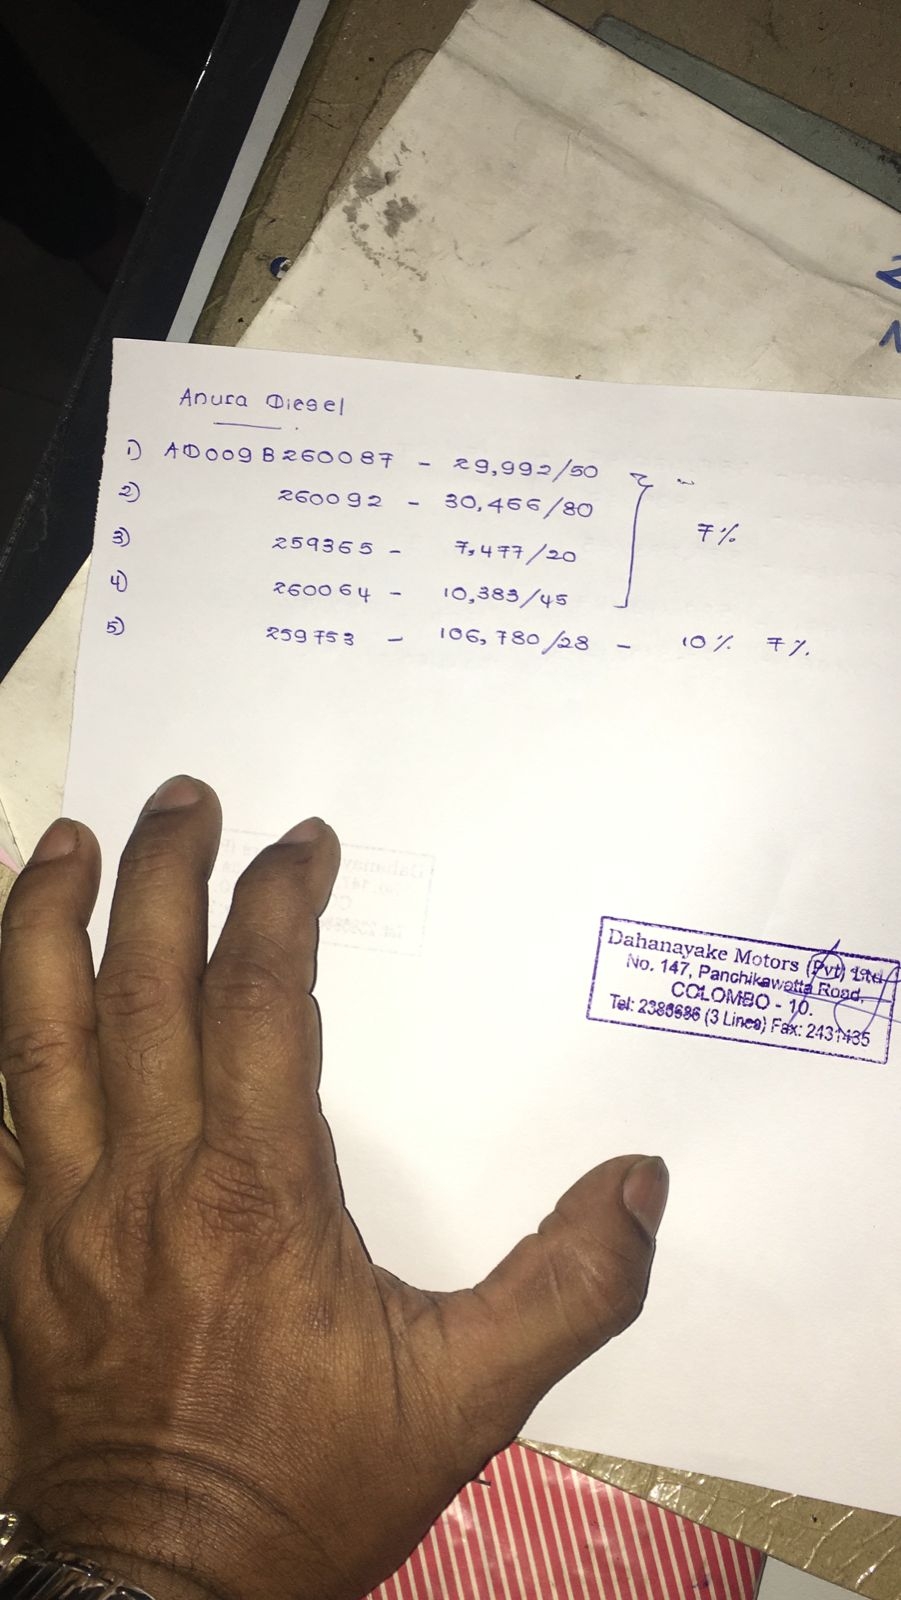 Anura Diesel
1) AD009B260087 - 29,992/50
2) 260092 - 30,466/80
7%
3) 259365 - 7,477/20
4) 260064 - 10,383/45
5) 259753 - 106,780/28 - 10% 7%
Dahanayake Motors (Pvt) Ltd
No. 147, Panchikawatta Road,
COLOMBO - 10.
Tel: 2386686 (3 Lines) Fax: 2431435